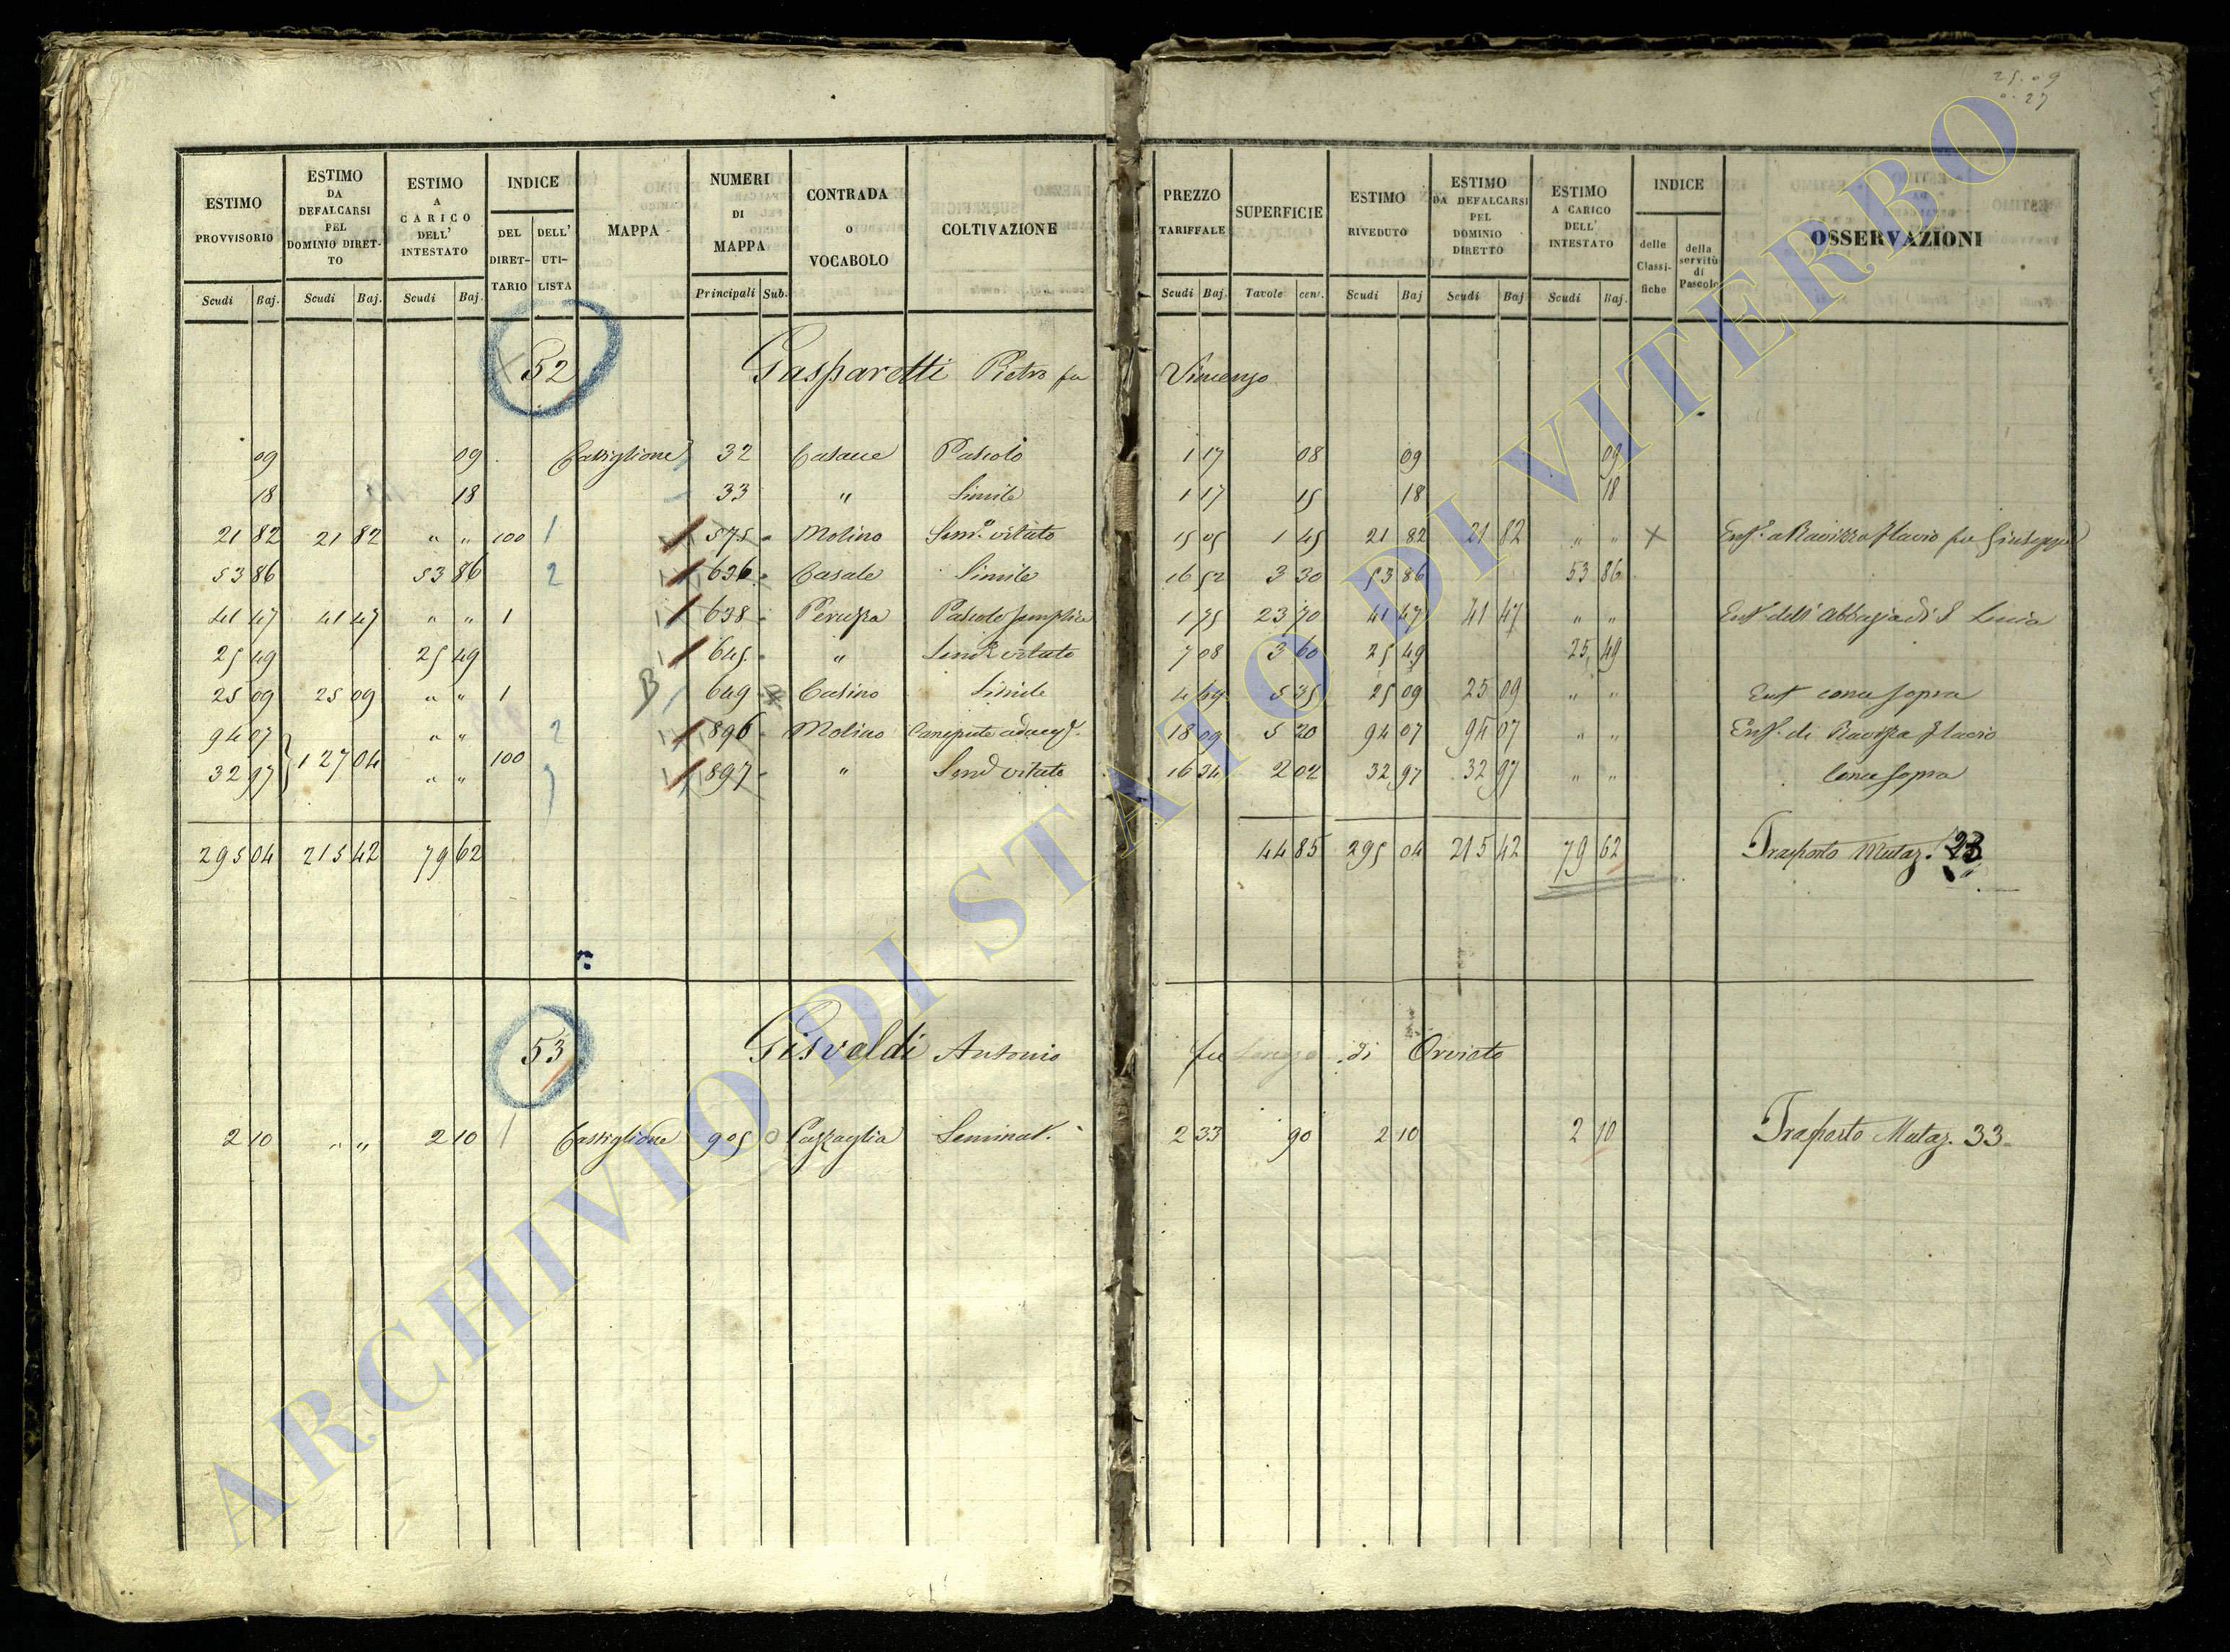 25.09
0.27
ESTIMO PROVVISORIO | ESTIMO DA DEFALCARSI PEL DOMINIO DIRETTO | ESTIMO A CARICO DELL' INTESTATO | INDICE | MAPPA | NUMERI DI MAPPA | CONTRADA O VOCABOLO | COLTIVAZIONE | PREZZO TARIFFALE | SUPERFICIE | ESTIMO RIVEDUTO | ESTIMO DA DEFALCARSI PEL DOMINIO DIRETTO | ESTIMO A CARICO DELL' INTESTATO | INDICE | OSSERVAZIONI
DEL DIRET-TARIO | DELL' UTI-LISTA | delle Classi-fiche | della servitù di Pascolo
Scudi | Baj. | Scudi | Baj. | Scudi | Baj. | Principali | Sub. | Scudi | Baj. | Tavole | cen. | Scudi | Baj | Scudi | Baj | Scudi | Baj.
52 Gasparetti Pietro fu Vincenzo
09 09 Castiglione 32 Pascolo 1 17 08 09 09
18 18 33 " Simile 1 17 15 18 18
21 82 21 82 " " 100 1 575 Molino Sem.o vitato 15 05 1 45 21 82 21 82 " " X Enf. a Ravizza Flavio fu Giuseppe
53 86 53 86 2 636 Casale Simile 16 32 3 30 53 86 53 86
41 47 41 47 " " 1 638 Pascolo semplice 1 75 23 70 41 47 41 47 " " Enf. dell' Abbazia di S Lucia
25 49 25 49 645 " Sem. vitato 7 08 3 60 25 49 25 49
25 09 25 09 " " 1 B 649 Casino Simile 4 69 5 35 25 09 25 09 " " Enf come sopra
94 07 " " 2 896 Molino 18 09 5 20 94 07 94 07 " " Enf. di Ravizza Flavio
127 04 100
32 97 " " 897 " Sem. vitato 16 34 2 02 32 97 32 97 " " Come sopra
295 04 215 42 79 62 44 85 295 04 215 42 79 62 Trasporto Mutaz. 23
53 Gisvaldi Antonio fu Lorenzo di Orvieto
2 10 " " 2 10 1 Castiglione 905 0 Cazzaglia Seminat. 2 33 90 2 10 2 10 Trasporto Mutaz. 33
ARCHIVIO DI STATO DI VITERBO